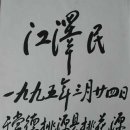 江泽民
一九九五年三月廿四日
于常德桃源县桃花源